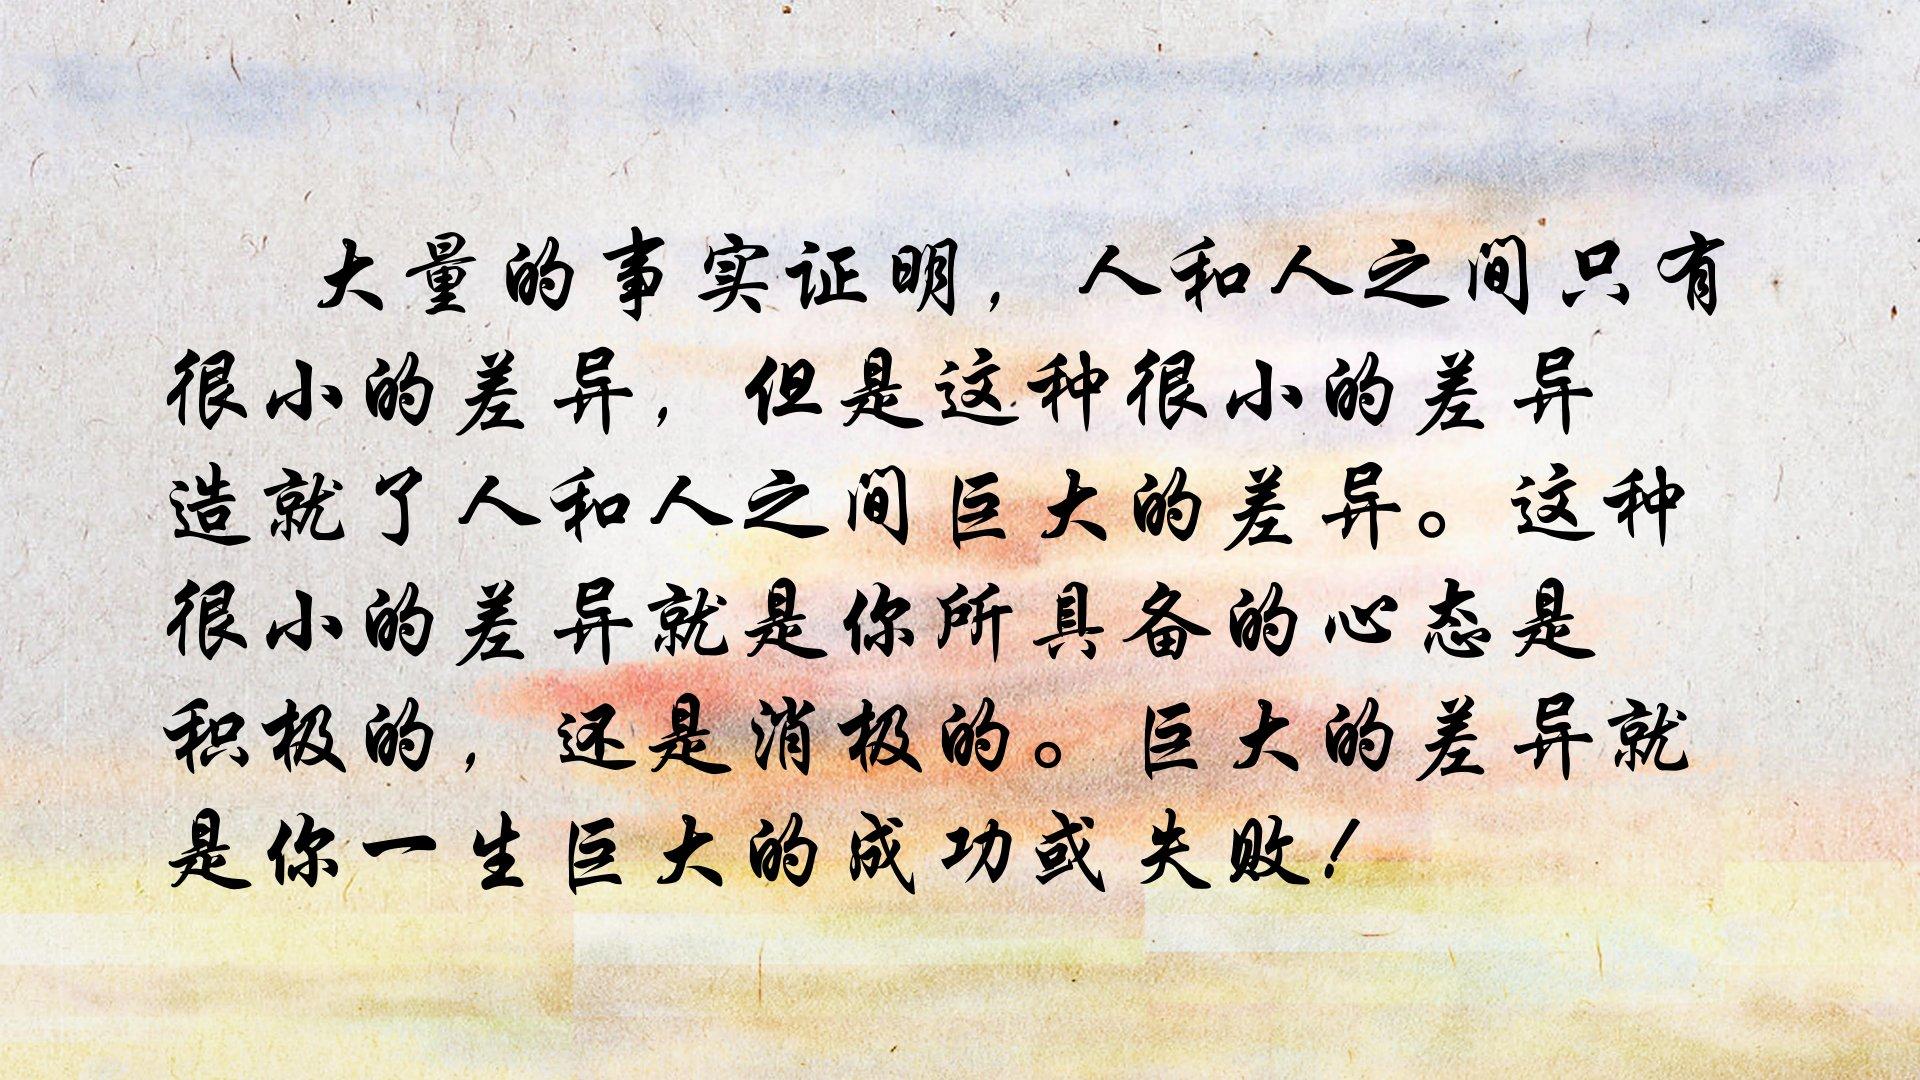 大量的事实证明，人和人之间只有
很小的差异，但是这种很小的差异
造就了人和人之间巨大的差异。这种
很小的差异就是你所具备的心态是
积极的，还是消极的。巨大的差异就
是你一生巨大的成功或失败！